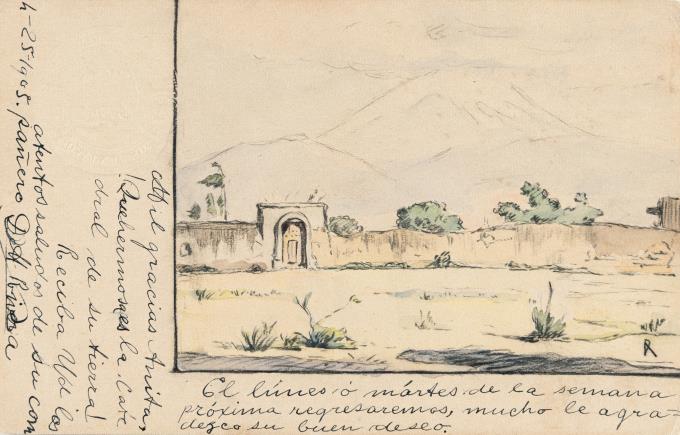 Mil gracias Anita,
¡Que hermosa es la Cate
dral de su tierra!
Reciba Ud los
atentos saludos de su com
4-25-1905. pañero Rivera
El lúnes ó mártes de la semana
próxima regresaremos, mucho le agra=
dezco su buen deseo.
R